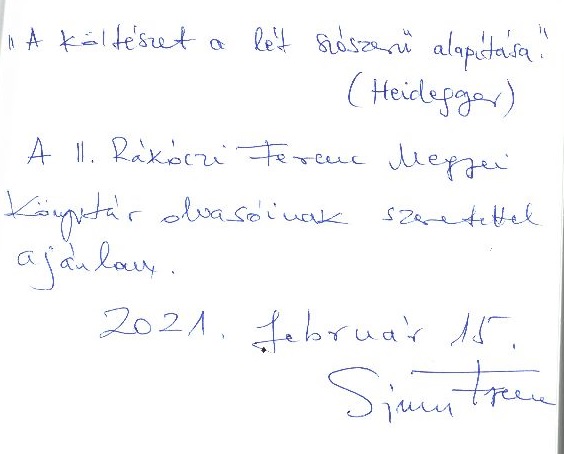 "A költészet a lét szószerű alapítása."
(Heidegger)
A II. Rákóczi Ferenc Megyei
Könyvtár olvasóinak szeretettel
ajánlom.
2021. február 15.